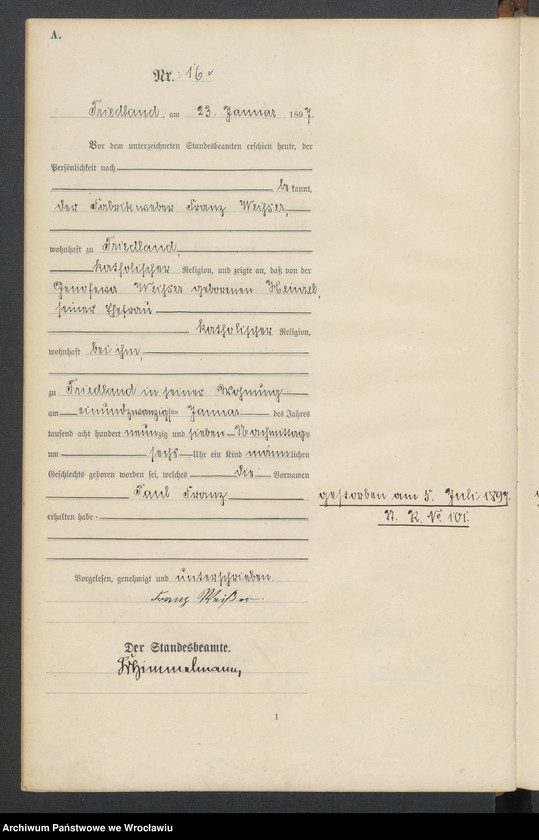 A.
Nr. 16
Friedland, am 23. Januar 1897.
Vor dem unterzeichneten Standesbeamten erschien heute, der
Persönlichkeit nach
be kannt,
der Fabrikweber Franz Weihser,
wohnhaft zu Friedland,
katholischer Religion, und zeigte an, daß von der
Genofewa Weihser geborenen Heinzel,
seiner Ehefrau
katholischer Religion,
wohnhaft bei ihm,
zu Friedland in seiner Wohnung
am einundzwanzigsten Januar des Jahres
tausend acht hundert neunzig und sieben Nachmittags
um sechs Uhr ein Kind männlichen
Geschlechts geboren worden sei, welches die Vornamen
Paul Franz
gestorben am 5. Juli 1897.
erhalten habe.
St. R. No 101.
Vorgelesen, genehmigt und unterschrieben.
Franz Weißer.
Der Standesbeamte.
Himmelmann,
1
Archiwum Państwowe we Wrocławiu